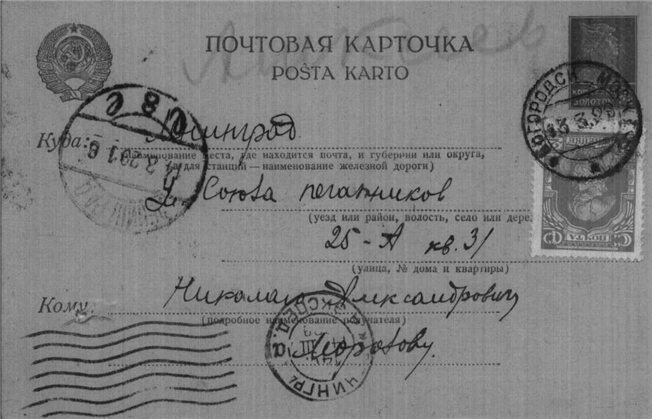 ПОЧТОВАЯ КАРТОЧКА
POŜTA KARTO
Куда: Ленинград
(наименование места, где находится почта, и губернии или округа,
а для станций — наименование железной дороги)
Ул. Союза печатников
(уезд или район, волость, село или дере
25-А кв. 31
(улица, № дома и квартиры)
Кому: Николаю Александровичу
(подробное наименование получателя)
Морозову.